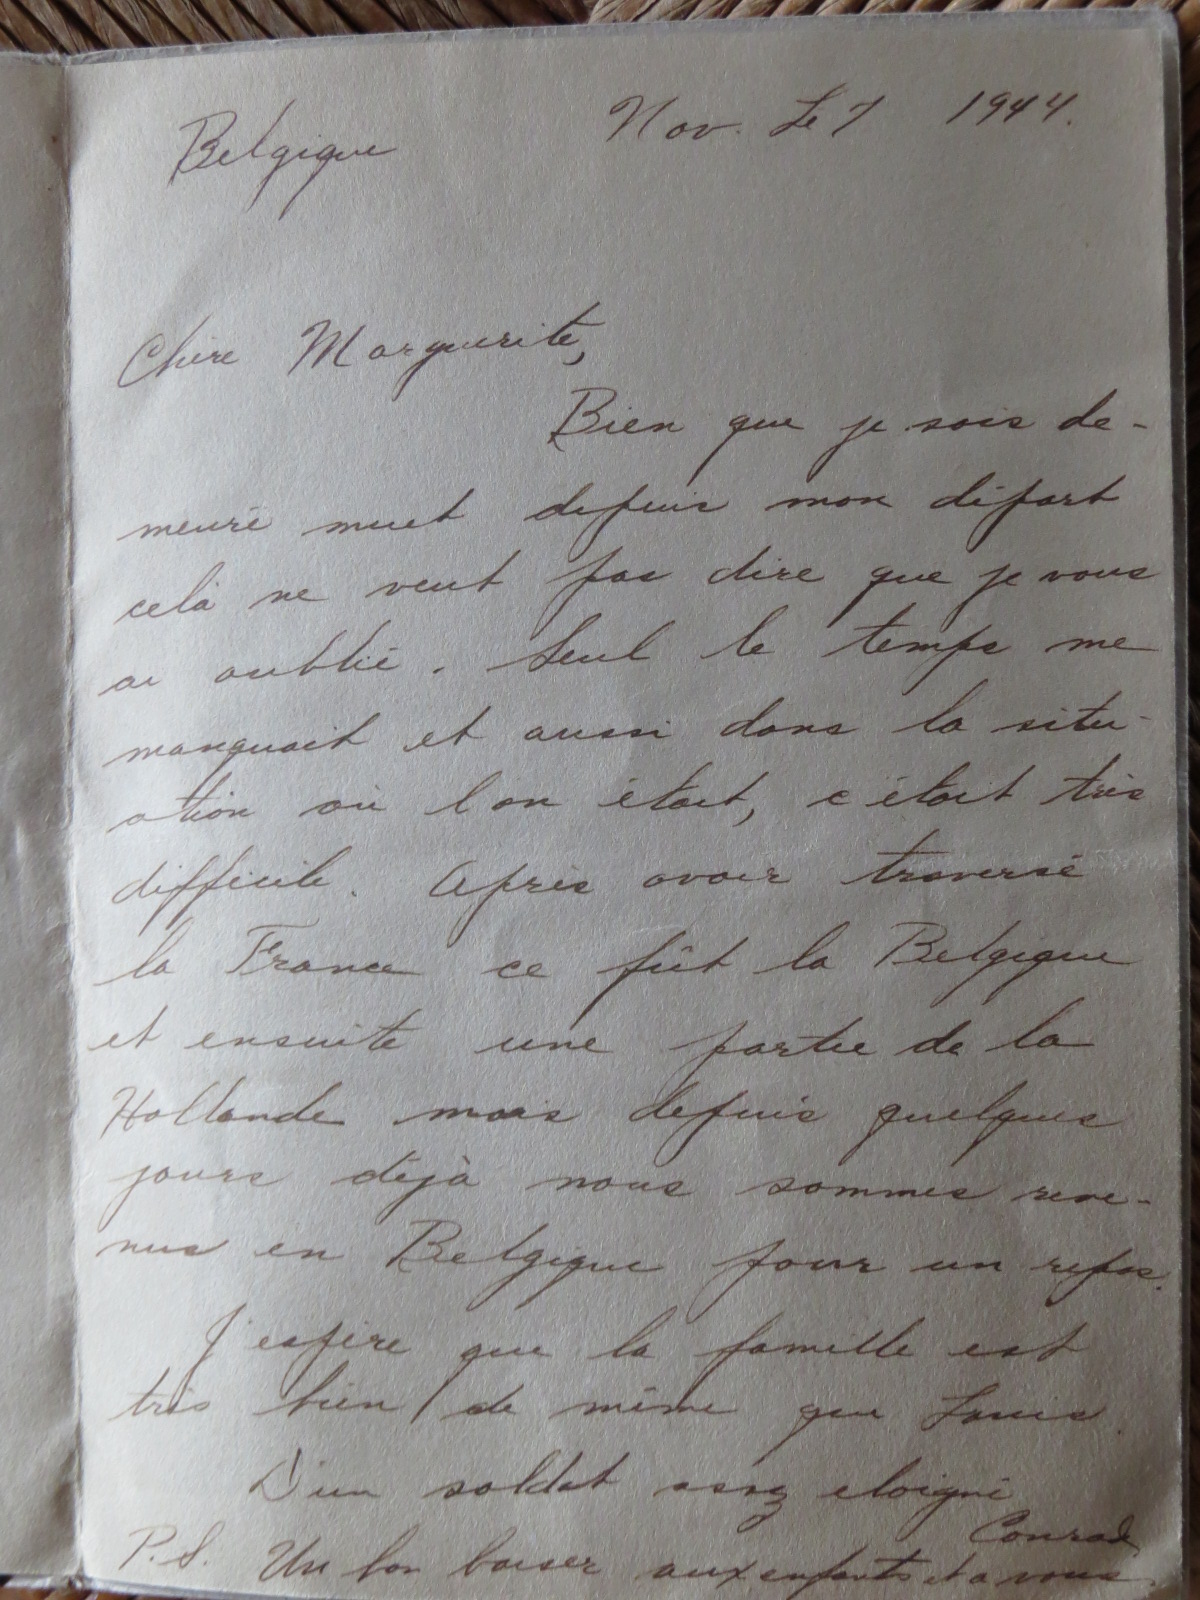 Belgique Nov. Le 7 1944.
Chère Marguerite,
Bien que je sois de-
meuré muet depuis mon départ
celà ne veut pas dire que je vous
ai oublié. Seul le temps me
manquait et aussi dans la situ-
ation où l'on était, c'était très
difficile. Après avoir traversé
la France ce fût la Belgique
et ensuite une partie de la
Hollande mais depuis quelques
jours déjà nous sommes reve-
nus en Belgique pour un repos.
J'espère que la famille est
très bien de même que Louis.
D'un soldat assez eloigné
Conrad
P.S. Un bon baiser aux enfants et a vous.